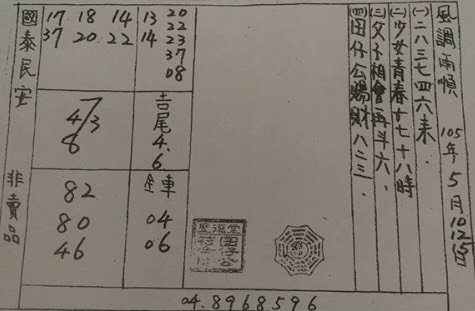 風調雨順 105年5月10 12 15
(一)二八三七四六来.
(二)少女青春十七十八時
(三)父子相會再斗六.
(四)田仔公賜財八二三.
20
13 22
14 23
37
08
17 18 14
37 20 22
吉尾 4. 6
4/3
6
全車
04
06
82
80
46
國泰民安 非賣品
04.8968596